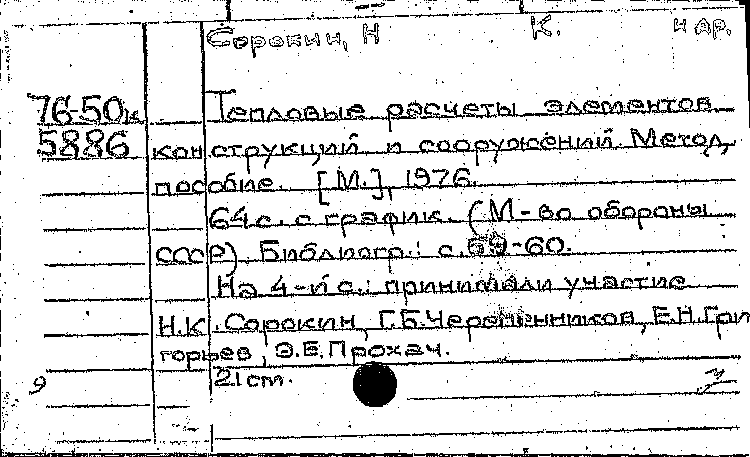 Сорокин, Н К. и др.
76-50к Тепловые расчеты элементов
5886 конструкций и сооружений. Метод.
пособие. [М.], 1976.
64 с. с график. (М-во обороны
СССР). Библиогр.: с. 59-60.
На 4-й с.: принимали участие
Н.К. Сорокин, Г.Б. Черепенников, Е.Н. Гри
горьев, Э.Е. Прохач.
21 cm.
9